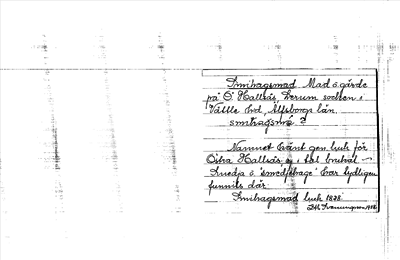 Smihagsmad Mad o gärde
på Ö. Hallsås, Lerum socken i
Vättle hd, Älfsborgs län.
smihagsma ?
Namnet känt gen. luk för
Östra Hallsås, ej i tal brukat
Smedja o "smedjehage" har tydligen
funnits där.
Smihagsmad luk 1828